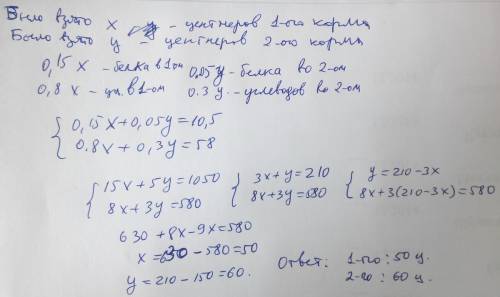 Было взято x - центнеров 1-ого корма
Было взято y - центнеров 2-ого корма
0,15 x - белка в 1 ом 0,05 y - белка во 2-ом
0,8 x - уг. в 1-ом 0.3 y. - углеводов во 2-ом
{ 0,15 x + 0,05 y = 10,5
0.8 x + 0,3 y = 58
{ 15 x + 5 y = 1050 { 3x + y = 210 { y = 210 - 3x
8 x + 3 y = 580 8x + 3y = 580 8x + 3(210 - 3x) = 580
630 + 8x - 9x = 580
x = 630 - 580 = 50
y = 210 - 150 = 60. Ответ: 1-го: 50 ц.
2-го: 60 ц.